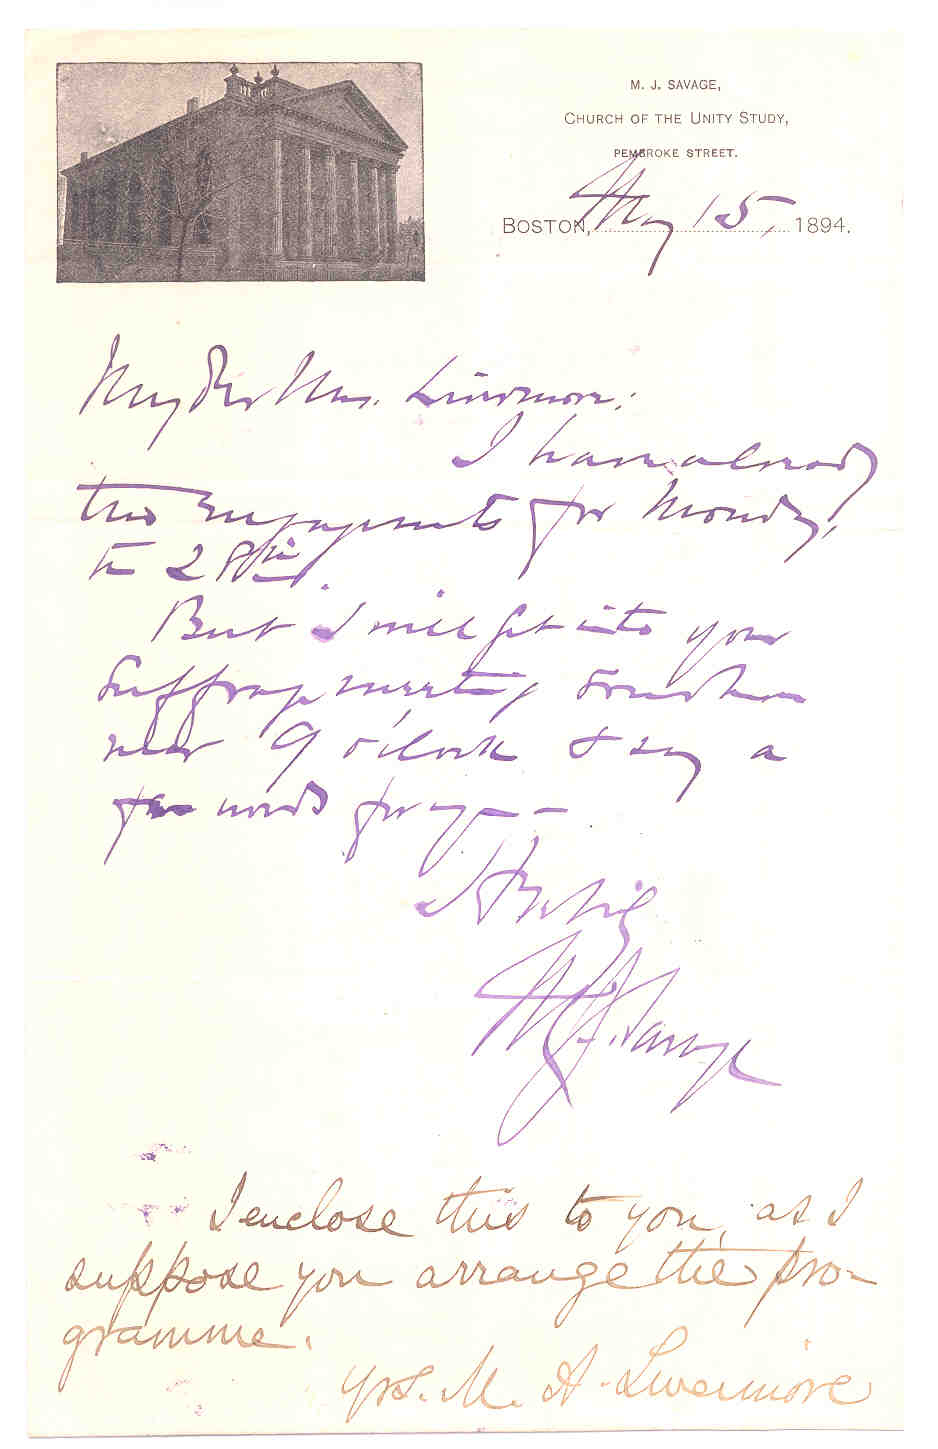 M. J. SAVAGE,
CHURCH OF THE UNITY STUDY,
PEMBROKE STREET.
BOSTON, May 15, 1894.
My Dear Mrs. Livermore:
I have already
two engagements for Monday,
the 28th.
But I will get into your
Suffrage meeting somewhere
near 9 o'clock & say a
few words for you –
Heartily
M J Savage
I enclose this to you, as I
suppose you arrange the pro-
gramme.
Yrs. M. A. Livermore